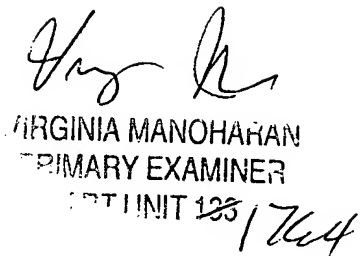 VIRGINIA MANOHARAN
PRIMARY EXAMINER
ART UNIT 1764